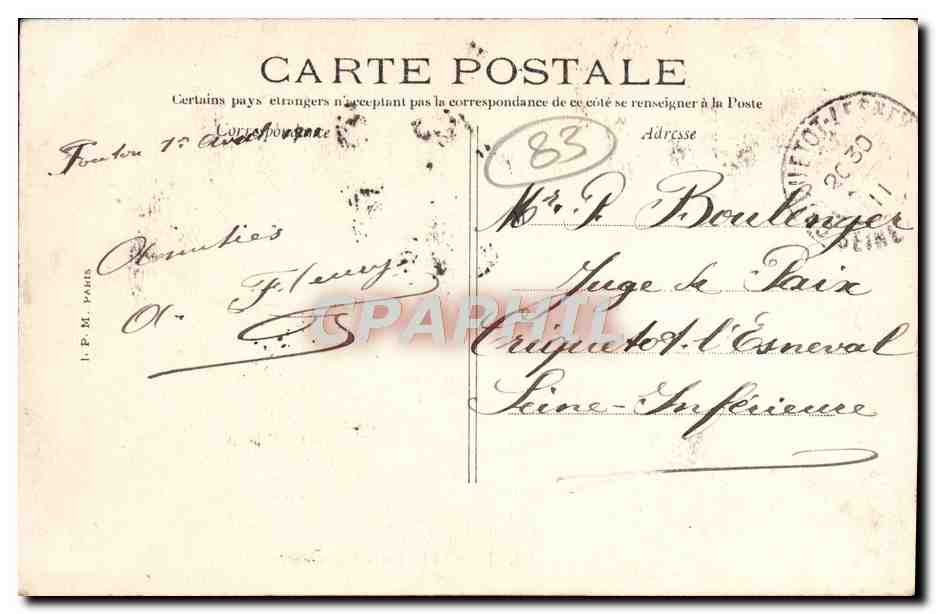 CARTE POSTALE
Certains pays etrangers n'acceptant pas la correspondance de ce côté se renseigner à la Poste
Correspondance
Adresse
83
Toulon 1er avril
Amitiés
A. Fleury
Mr. P. Boulenger
Juge de Paix
Criquetot-l'Esneval
Seine-Inférieure
I. P. M. PARIS
CPAPHIL
20 30
11
SEINE